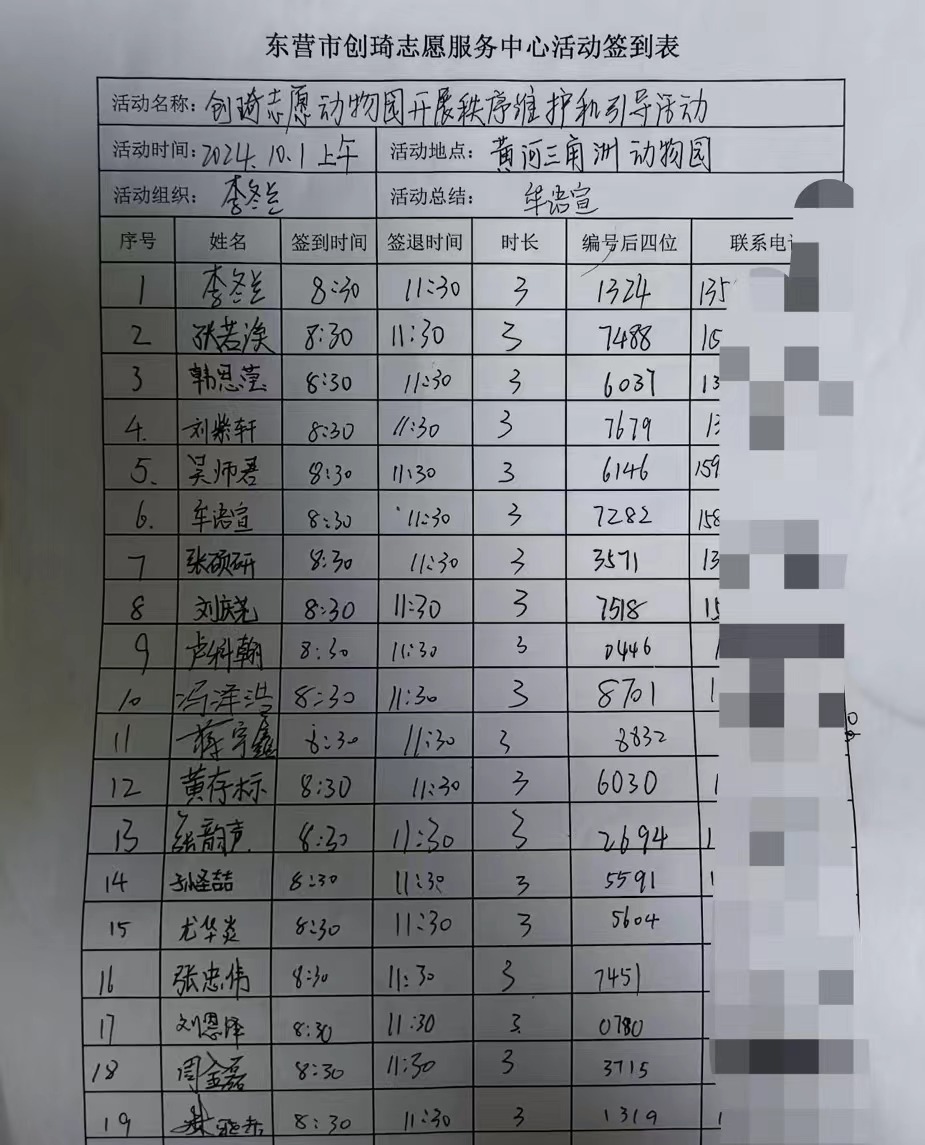 东营市创琦志愿服务中心活动签到表
活动名称: 创琦志愿动物园开展秩序维护和引导活动
活动时间: 2024.10.1上午 活动地点: 黄河三角洲动物园
活动组织: 李冬兰 活动总结: 牟语宣
序号 姓名 签到时间 签退时间 时长 编号后四位 联系电
1 李冬兰 8:30 11:30 3 1324 135
2 张若涣 8:30 11:30 3 7488 15
3 韩恩莹 8:30 11:30 3 6037 13
4. 刘紫轩 8:30 11:30 3 7679 13
5. 吴师君 8:30 11:30 3 6146 159
6. 牟语宣 8:30 11:30 3 7282 158
7 张硕研 8:30 11:30 3 3571 13
8 刘庆尧 8:30 11:30 3 7518 15
9 卢科翰 8:30 11:30 3 0446 1
10 冯泽浩 8:30 11:30 3 8701 1
11 蒋宇鑫 8:30 11:30 3 8832
12 黄存标 8:30 11:30 3 6030 1
13 张韵声 8:30 11:30 3 2694 1
14 8:30 11:30 3 5591 1
15 尤华炎 8:30 11:30 3 5604
16 张忠伟 8:30 11:30 3 7451
17 刘恩泽 8:30 11:30 3. 0780
18 周金磊 8:30 11:30 3 3715
19 8:30 11:30 3 1319 1